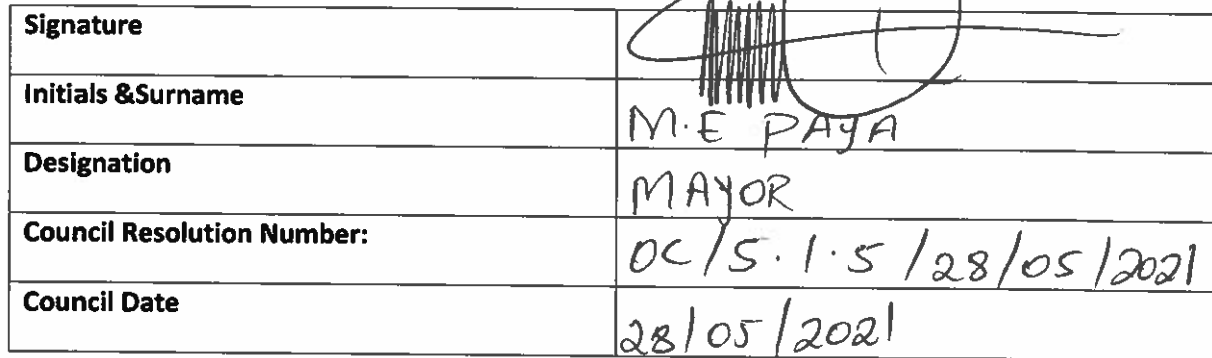 Signature
Initials &Surname
M.E PAYA
Designation
MAYOR
Council Resolution Number:
OC/5.1.5/28/05/2021
Council Date
28/05/2021